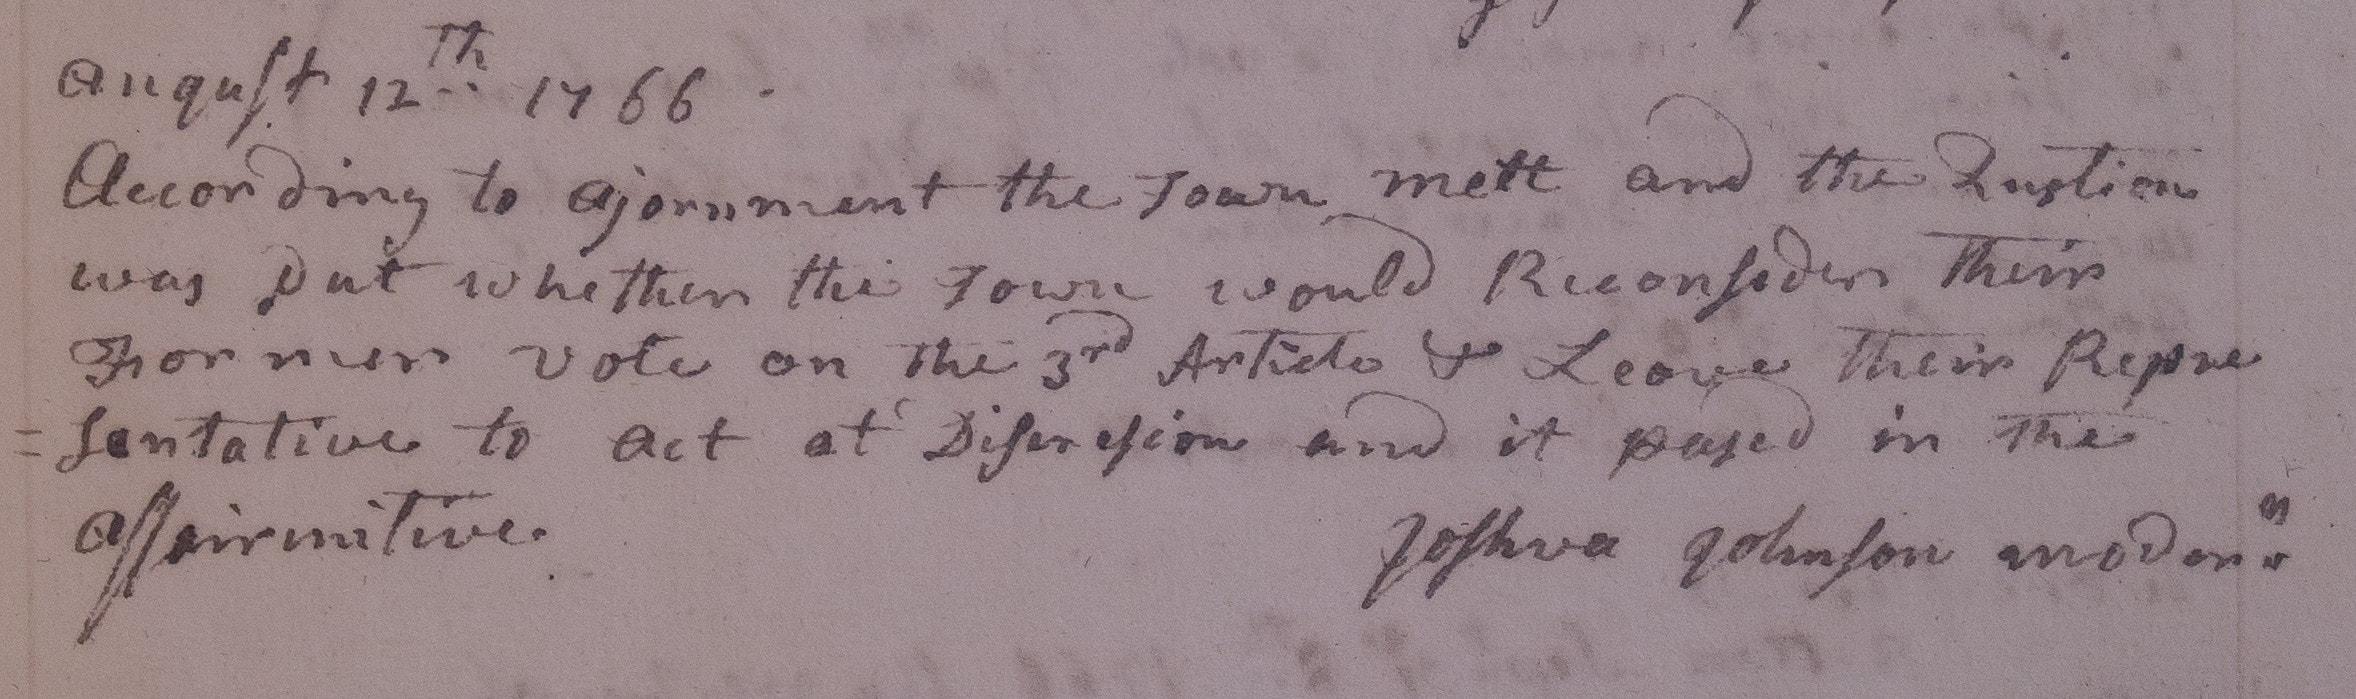 August 12th 1766
According to ajornment the Town mett and the Qustion
was put whether the Town would Reconsider their
Former vote on the 3rd Article & Leave their Repre
=sentative to act at Discresion and it pased in the
affairmitive.
Joshua Johnson moderr